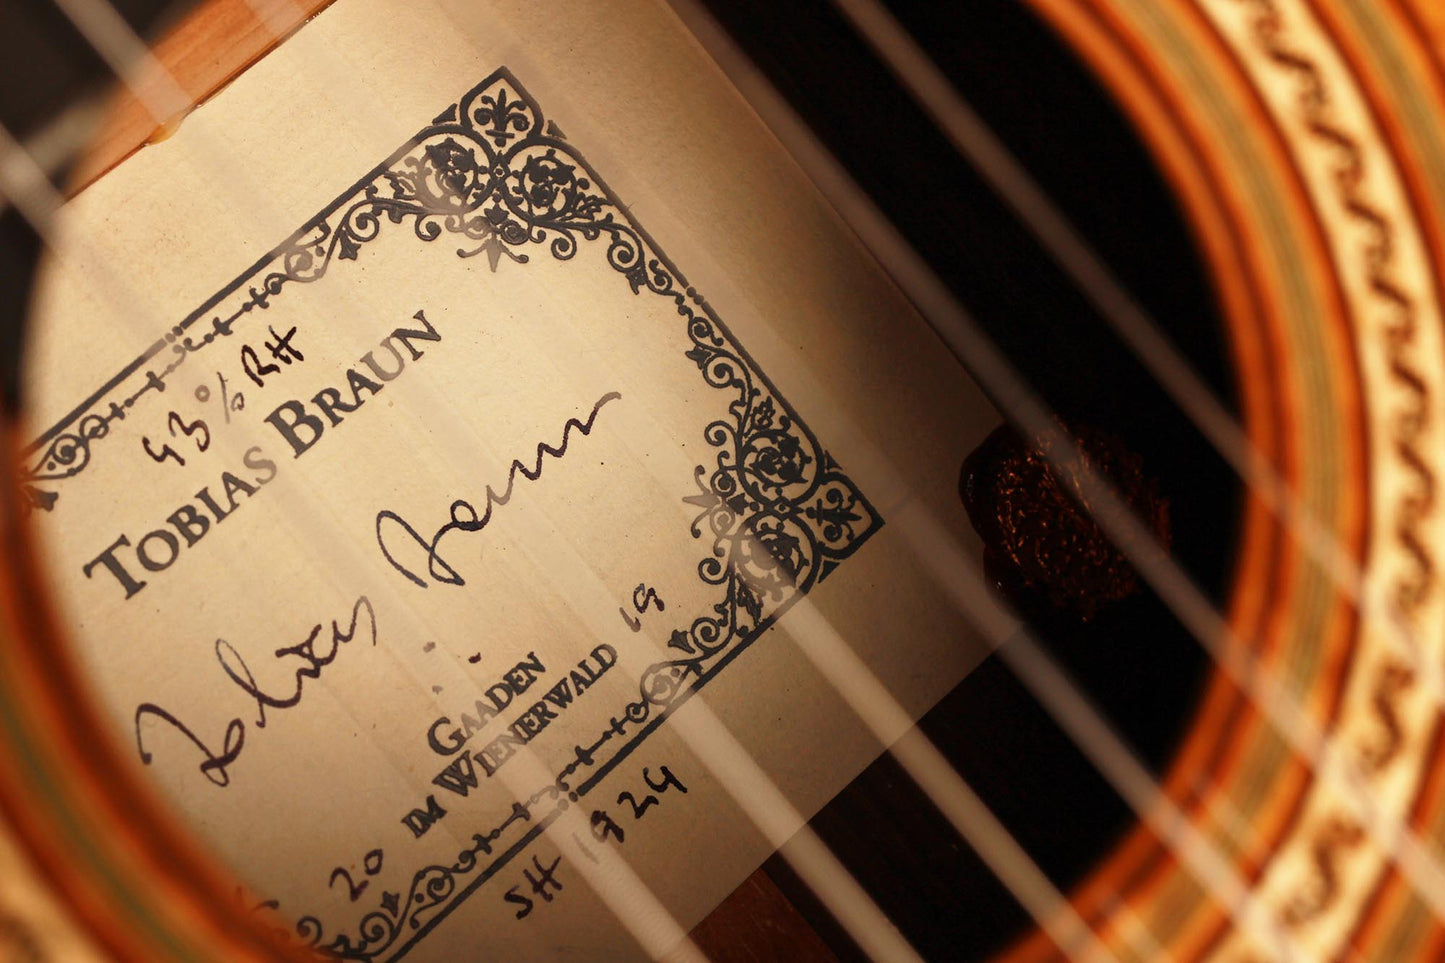 43% RH
TOBIAS BRAUN
Tobias Braun
GAADEN
IM WIENERWALD
20 19
SH 1924